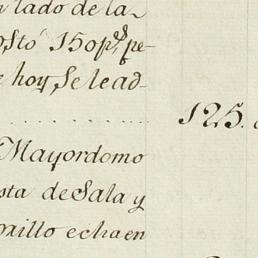 lado de la
ostó 150 p.s pe-
e hoy, Se le ad-
125.
Mayordomo
sta de Sala y
echa en